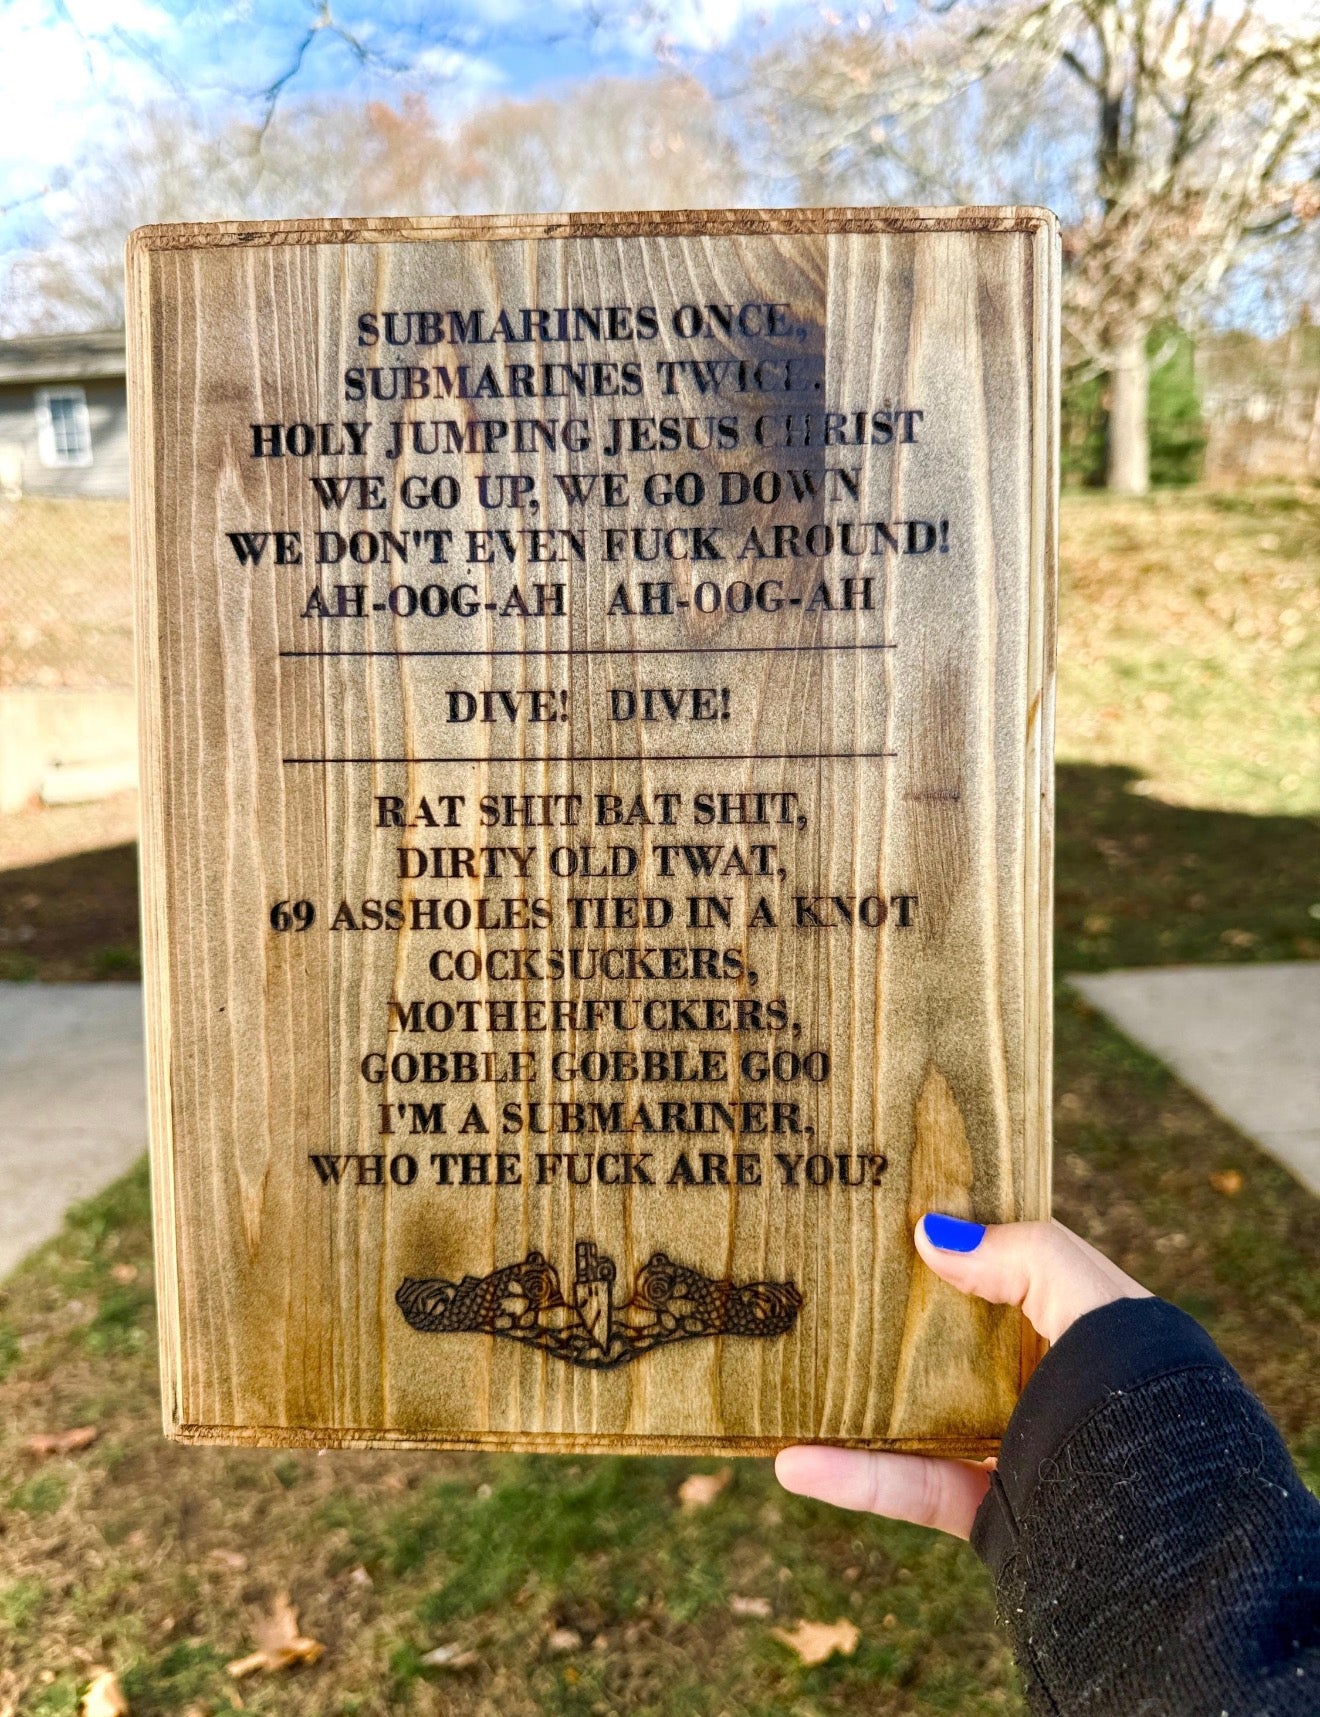 SUBMARINES ONCE,
SUBMARINES TWICE.
HOLY JUMPING JESUS CHRIST
WE GO UP, WE GO DOWN
WE DON'T EVEN FUCK AROUND!
AH-OOG-AH AH-OOG-AH
DIVE! DIVE!
RAT SHIT BAT SHIT,
DIRTY OLD TWAT,
69 ASSHOLES TIED IN A KNOT
COCKSUCKERS,
MOTHERFUCKERS,
GOBBLE GOBBLE GOO
I'M A SUBMARINER,
WHO THE FUCK ARE YOU?